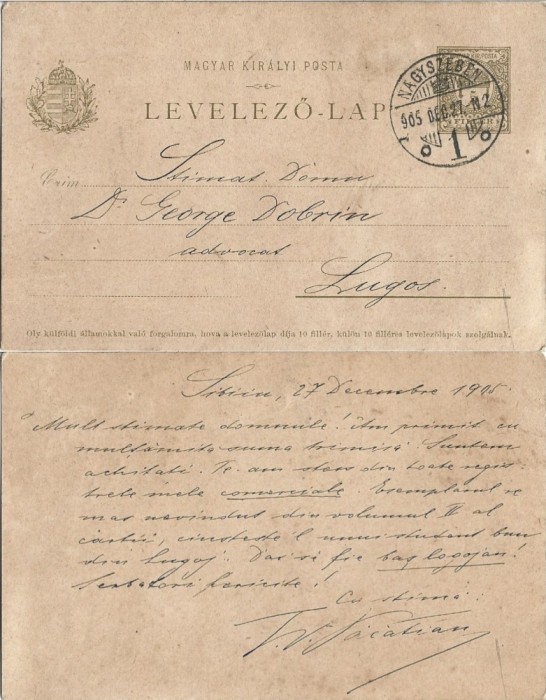 MAGYAR KIRÁLYI POSTA
LEVELEZŐ-LAP
NAGYSZEBEN
905 DEC. 27. N 2
1
Czim
Stimat. Domn
Dr George Dobrin
advocat
Lugos.
Oly külföldi államokkal való forgalomra, hova a levelezőlap díja 10 fillér, külön 10 filléres levelezőlapok szolgálnak.
Sibiiu, 27 Decembre 1905.
Mult stimate domnule! Am primit cu
multămită suma trimisă. Suntem
achitati. Te-am sters din toate regis-
trele mele comerciale. Esemplarul re-
mas nevindut din volumul II al
cărtii, cinsteste-l unui student bun
din Lugoj. Dar să fie bas logojan!
Serbatori fericite!
Cu stimă:
T. V. Păcătian